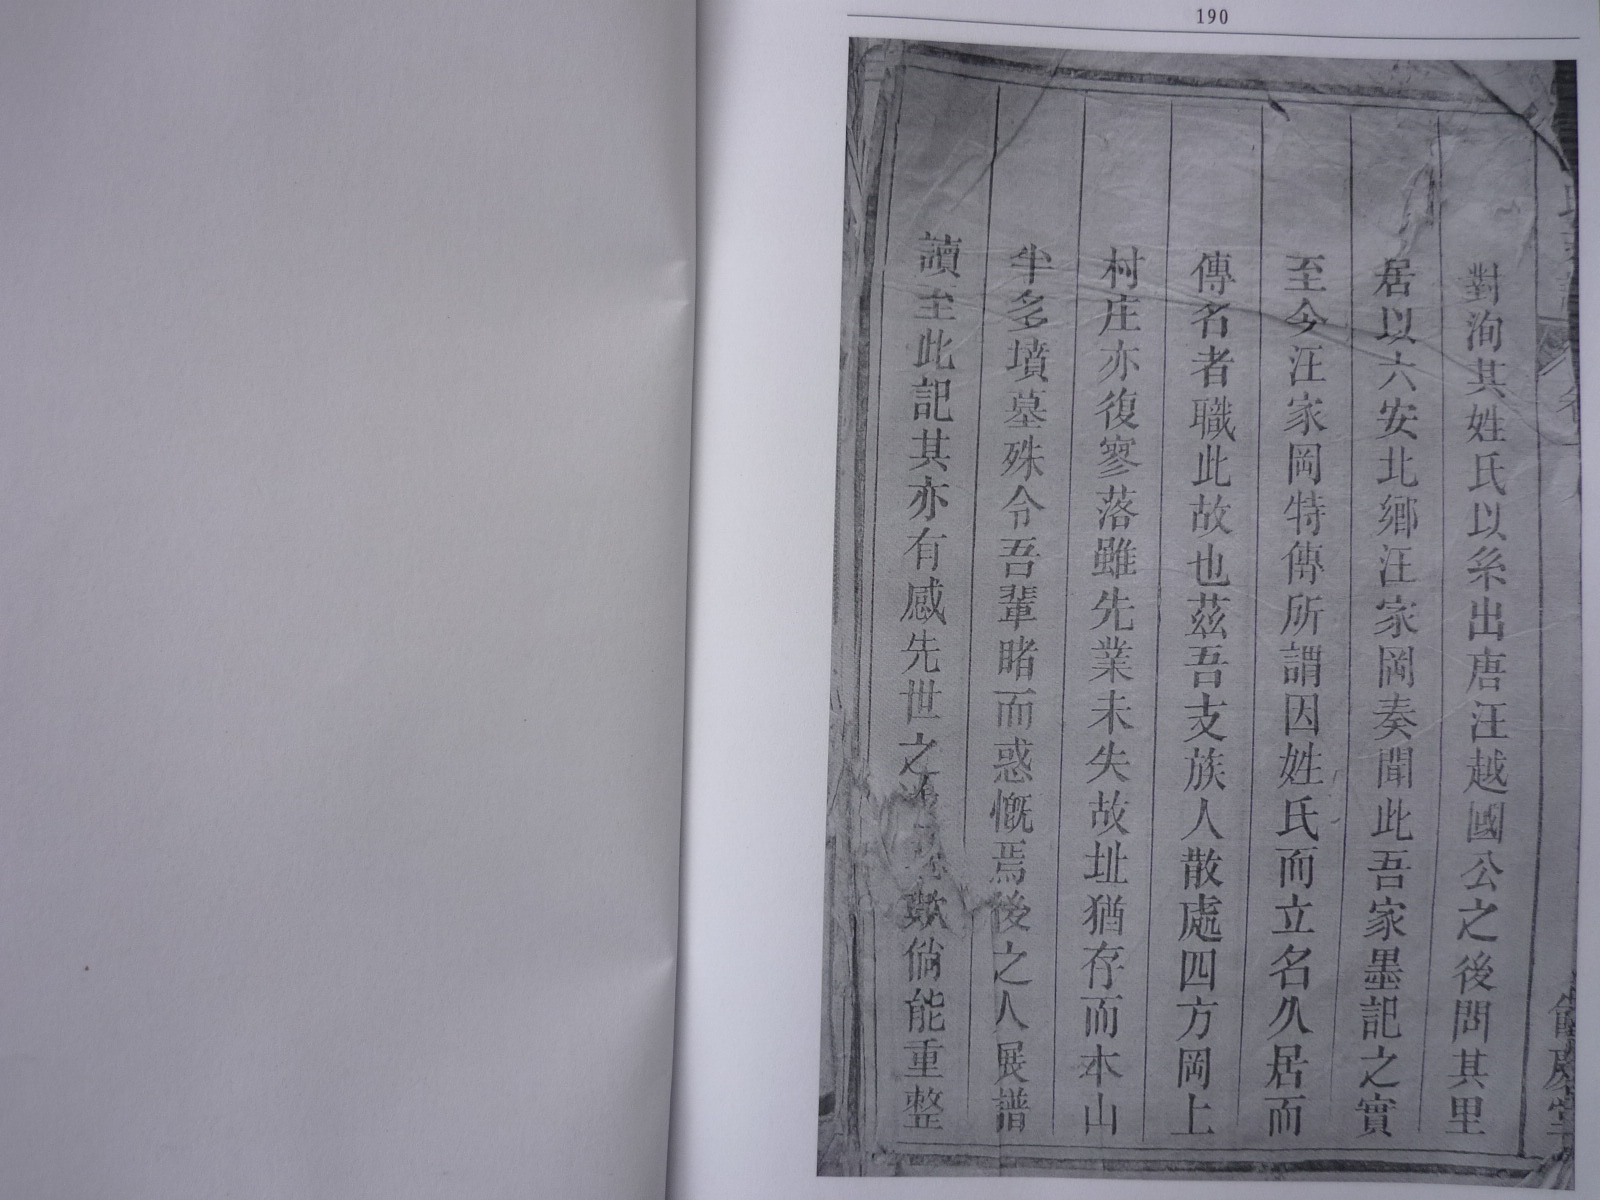 190
對洵其姓氏以系出唐汪越國公之後問其里
居以六安北鄉汪家岡奏聞此吾家墨記之實
至今汪家岡特傳所謂因姓氏而立名久居而
傳名者職此故也茲吾支族人散處四方岡上
村庄亦復寥落雖先業未失故址猶存而本山
半多墳墓殊令吾輩睹而惑慨焉後之人展譜
讀至此記其亦有感先世之歟倘能重整
慶堂